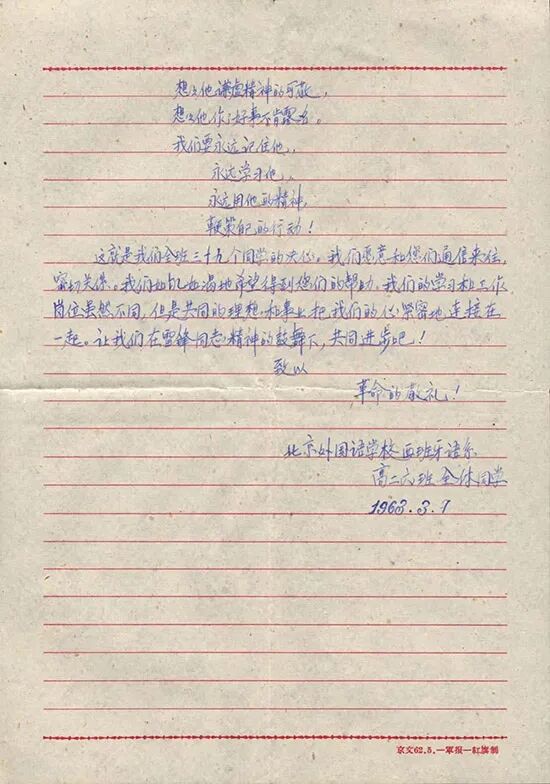 想想他谦虚精神的可敬，
想想他作了好事不肯露名。
我们要永远记住他，
永远学习他，
永远用他的精神，
鞭策自己的行动！
这就是我们全班三十九个同学的决心。我们愿意和您们通信来往，
密切关系。我们如饥如渴地希望得到您们的帮助。我们的学习和工作
岗位虽然不同，但是共同的理想和事业把我们的心紧密地连接在
一起。让我们在雷锋同志精神的鼓舞下，共同进步吧！
致以
革命的敬礼！
北京外国语学校西班牙语系
高二六班全体同学
1963.3.9
京文62.5.一軍报一紅旗制